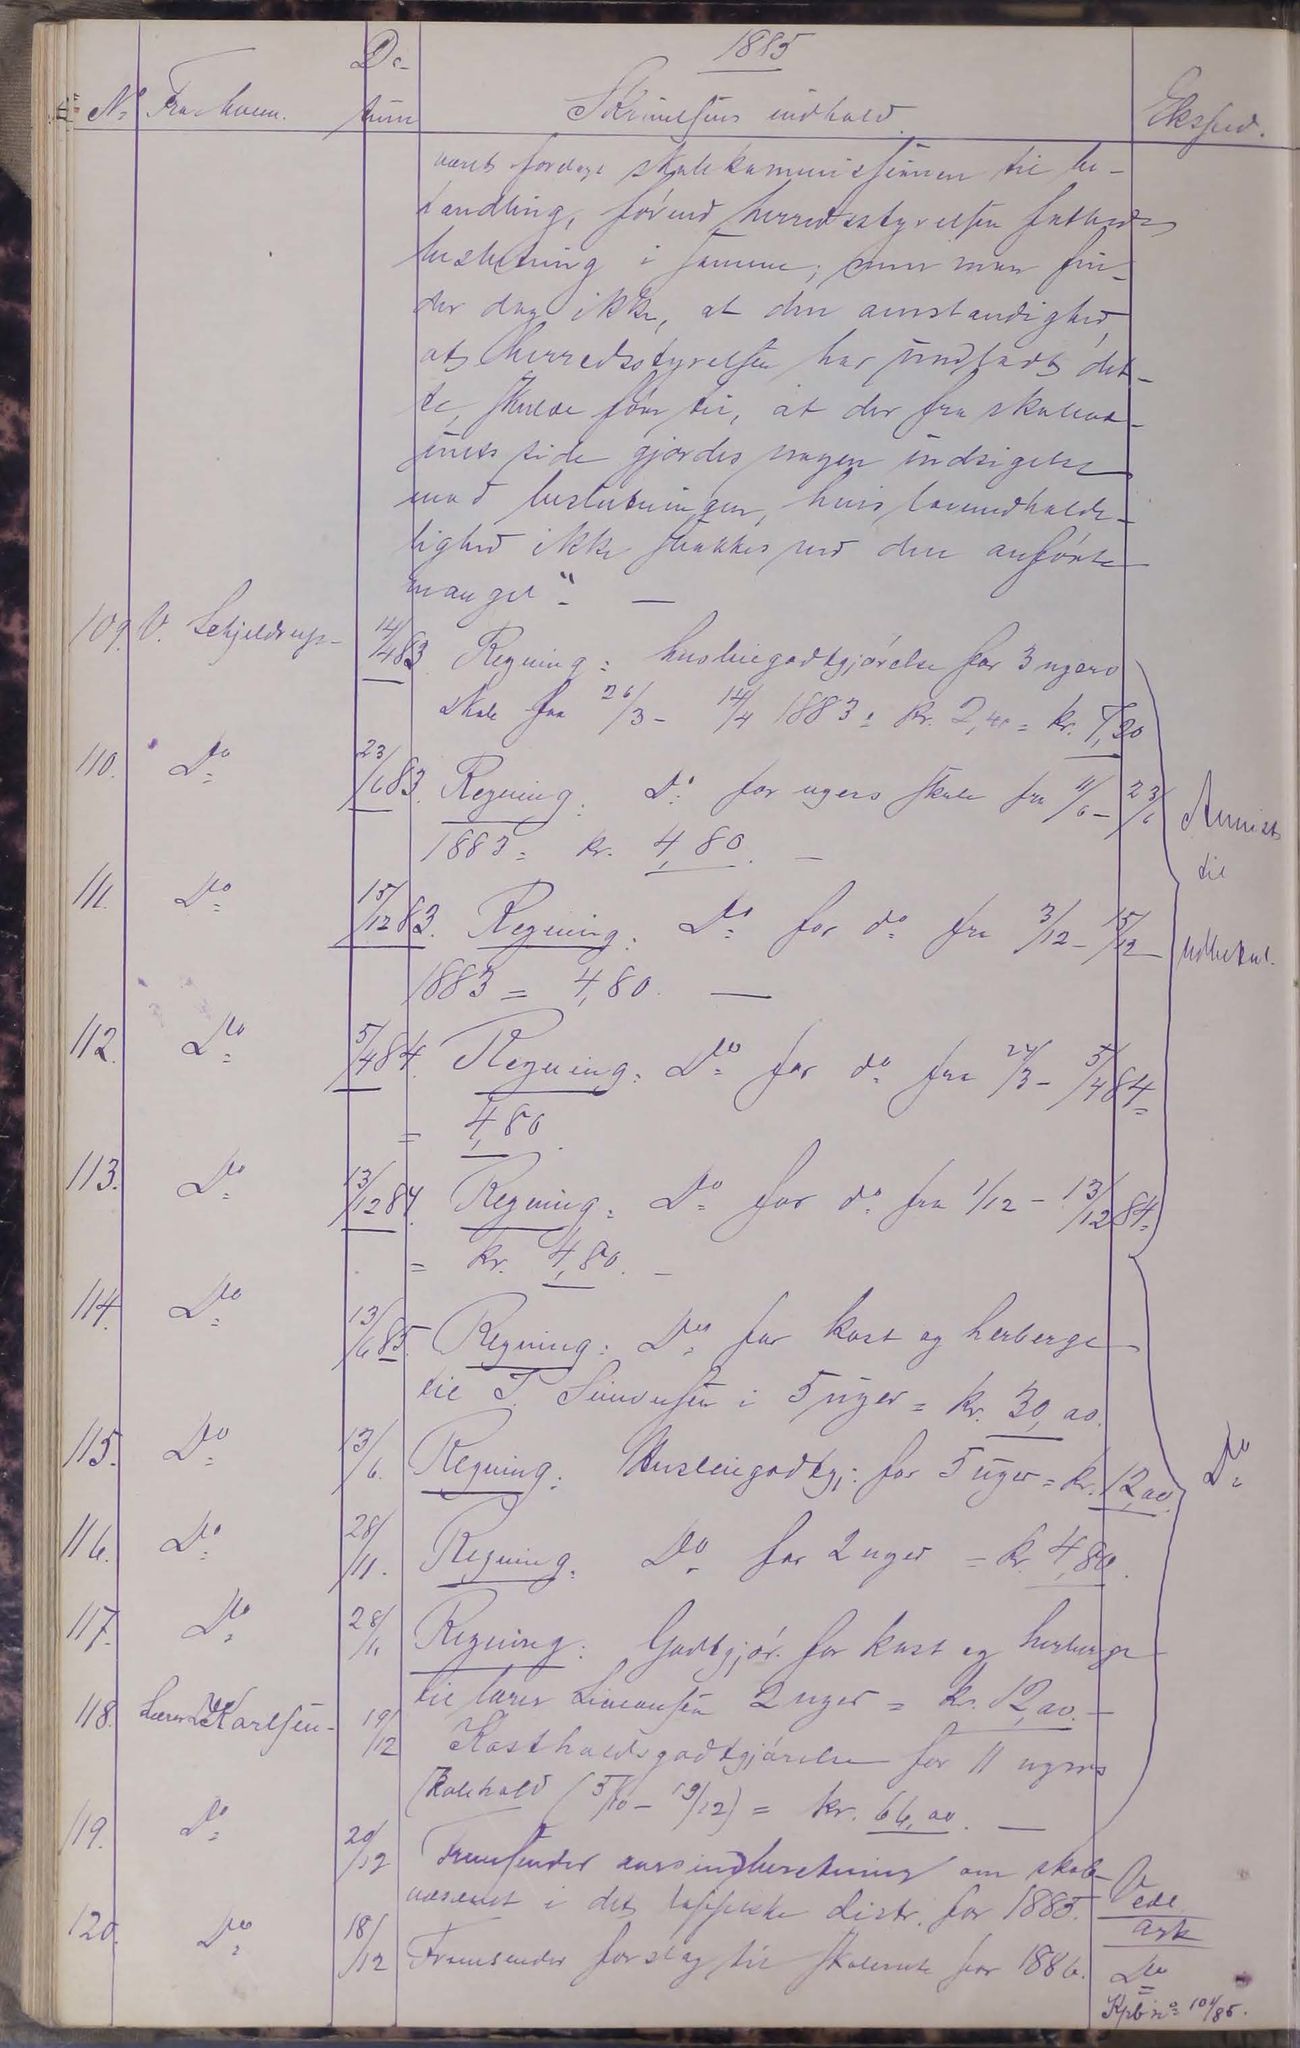 1885
No Fra hvem. Datum Skrivelsens indhold. Eksped.
været forelagt skolekommissionen til be-
handling, förend herredsstyrelsen fattede
beslutning i samme; men man fin-
der dog ikke, at den omstændighed,
at herredsstyrelsen har undladt det-
te, skulde före til, at der fra skolevæ-
senets side gjördes nogen indsigelse
mod beslutningen, hvis lovmedholde-
lighed ikke svækkes ved den anförte
mangel". —
109. O. Schjeldrup- 14/4 83 Regning: husleiegodtgjörelse for 3 ugers
skole fra 26/3 - 14/4 1883: kr. 2,40 = kr. 7,20
110. Do 23/6 83. Regning: Do for ugers skole fra 11/6 - 23/6
1883 = kr. 4,80. —
Anvist
til
udbetal.
111. Do 15/12 83. Regning: Do for do fra 3/12 - 15/12
1883 = 4,80. —
112. Do 5/4 84. Regning: Do for do fra 24/3 - 5/4 84 =
= 4,80.
113. Do 13/12 84. Regning: Do for do fra 1/12 - 13/12 84 =
= kr. 4,80. —
114. Do 13/6 85. Regning: Do for kost og herberge
til T. Simonsen i 5 uger = kr. 30,00.
115. Do 13/6. Regning: Husleiegodtgj: for 5 uger = kr. 12,00. Do
116. Do 28/11. Regning: Do for 2 uger = kr. 4,80.
117. Do 28/11 Regning: Godtgjör. for kost og herberge
til lærer Simonsen 2 uger = kr. 12,00. —
118. Lærer Karlsen- 19/12 Kostholdsgodtgjörelse for 11 ugers
skolehold (5/10 - 19/12) = kr. 66,00. —
119. Do 20/12 Fremsender aarsindberetning om skole-
væsenet i det lappiske distr. for 1885. Vedl.
ark
120. Do 18/12 Fremsender forslag til skolerute for 1886. Do
Kpb no 104/85.